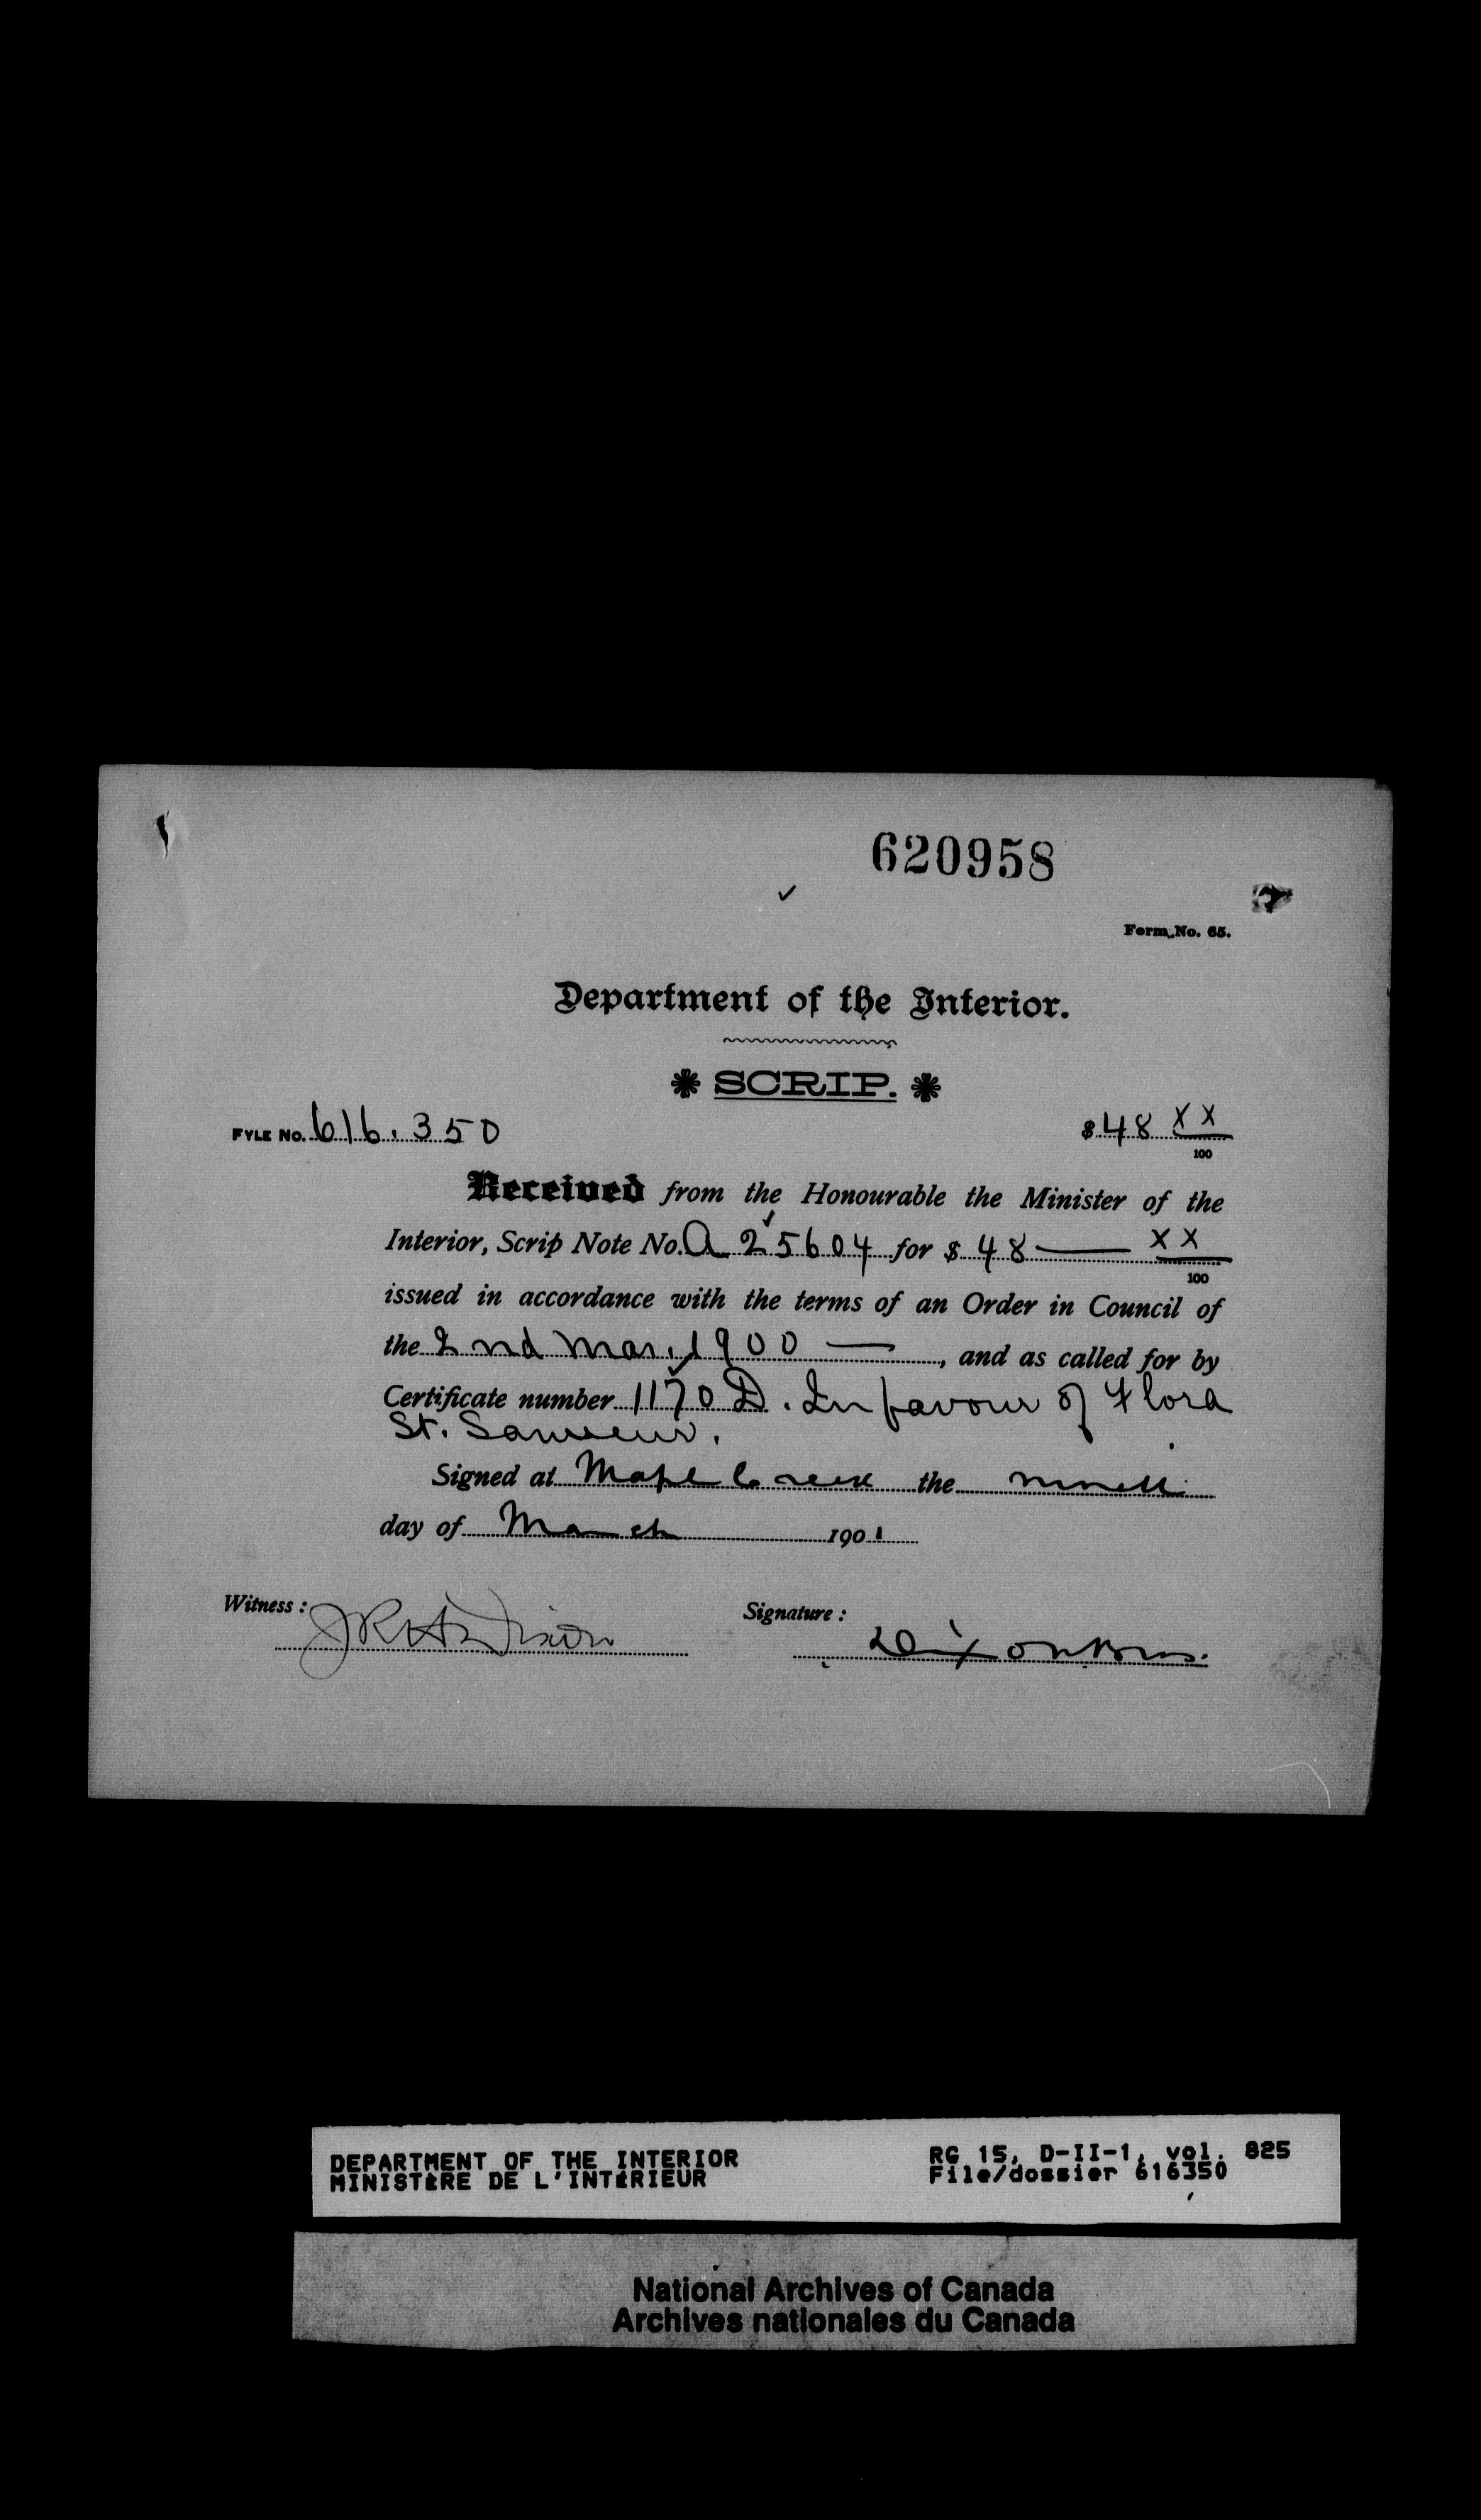 620958
Form No. 65.
Department of the Interior.
SCRIP.
FYLE No. 616.350 $48 XX/100
Received from the Honourable the Minister of the
Interior, Scrip Note No. A 25604 for $ 48 — XX/100
issued in accordance with the terms of an Order in Council of
the 2nd Mar. 1900 —, and as called for by
Certificate number 1170 D. In favour of Flora
St. Sauveur.
Signed at Maple Creek the ninth
day of March 1901
Witness: Dixon Signature: Dixon Bros.
DEPARTMENT OF THE INTERIOR RG 15, D-II-1, vol. 825
MINISTÈRE DE L'INTÉRIEUR File/dossier 616350
National Archives of Canada
Archives nationales du Canada